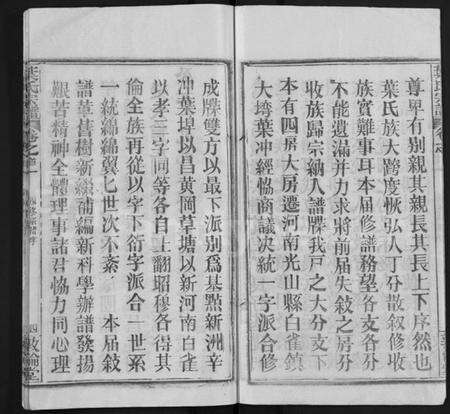 尊卑有別親其親長其長上下序然也
葉氏族大跨度恢弘人丁分散叙修收
族實難事耳本届修譜務望各支各分
不能遺漏并力求將前届失敍之房分
收族歸宗納入譜牒我戸之大分支下
本有四房大房遷河南光山縣白雀鎮
大塆葉冲經協商議决統一字派合修
成牒雙方以最下派別為基點新洲辛
冲葉埠以昌黄岡草塘以新河南白雀
以孝三字同等各自上翻昭穆各得其
倫全族再從以字下衍字派合一世系
一統綿綿翼翼七世次不紊 本届敍
譜革舊樹新續補編新科學辦譜發揚
艱苦精神全體理事諸君協力同心理
葉氏宗譜 卷之首一
四
敦倫堂